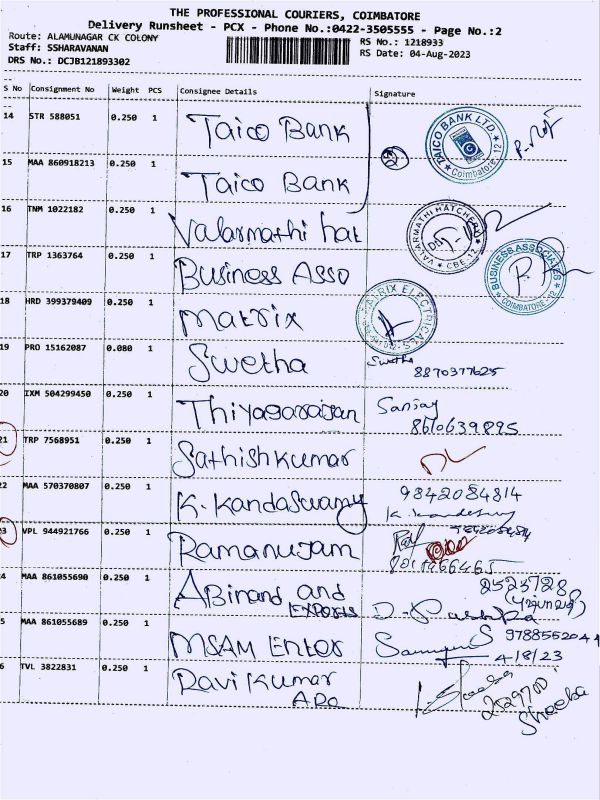 THE PROFESSIONAL COURIERS, COIMBATORE
Delivery Runsheet - PCX - Phone No.:0422-3505555 - Page No.:2
Route: ALAMUNAGAR CK COLONY
Staff: SSHARAVANAN
DRS No.: DCJB121893302
RS No.: 1218933
RS Date: 04-Aug-2023
S No Consignment No Weight PCS Consignee Details Signature
14 STR 588051 0.250 1 Taico Bank
TAICO BANK LTD. Coimbatore. 12
15 MAA 860918213 0.250 1 Taico Bank
16 TNM 1022182 0.250 1 Valarmathi hat
VALARMATHI HATCHERY CBE-12
17 TRP 1363764 0.250 1 Business Asso
BUSINESS ASSOCIATES COIMBATORE-12
18 HRD 399379409 0.250 1 Matrix
MATRIX ELECTRICALS
19 PRO 15162087 0.080 1 Swetha Swetha
8870377625
20 IXM 504299450 0.250 1 Thiyagarajan Sanjay
8610639895
21 TRP 7568951 0.250 1 Sathishkumar
22 MAA 570370807 0.250 1 K. Kandaswamy 9842084814
K. Kandasamy
3 VPL 944921766 0.250 1 Ramanujam
4 MAA 861055690 0.250 1 Abinand and
Exports D. Pushpa
5 MAA 861055689 0.250 1 MSAM Enter
4/8/23
6 TVL 3822831 0.250 1 Ravi Kumar
APO
2529700
Sheeba